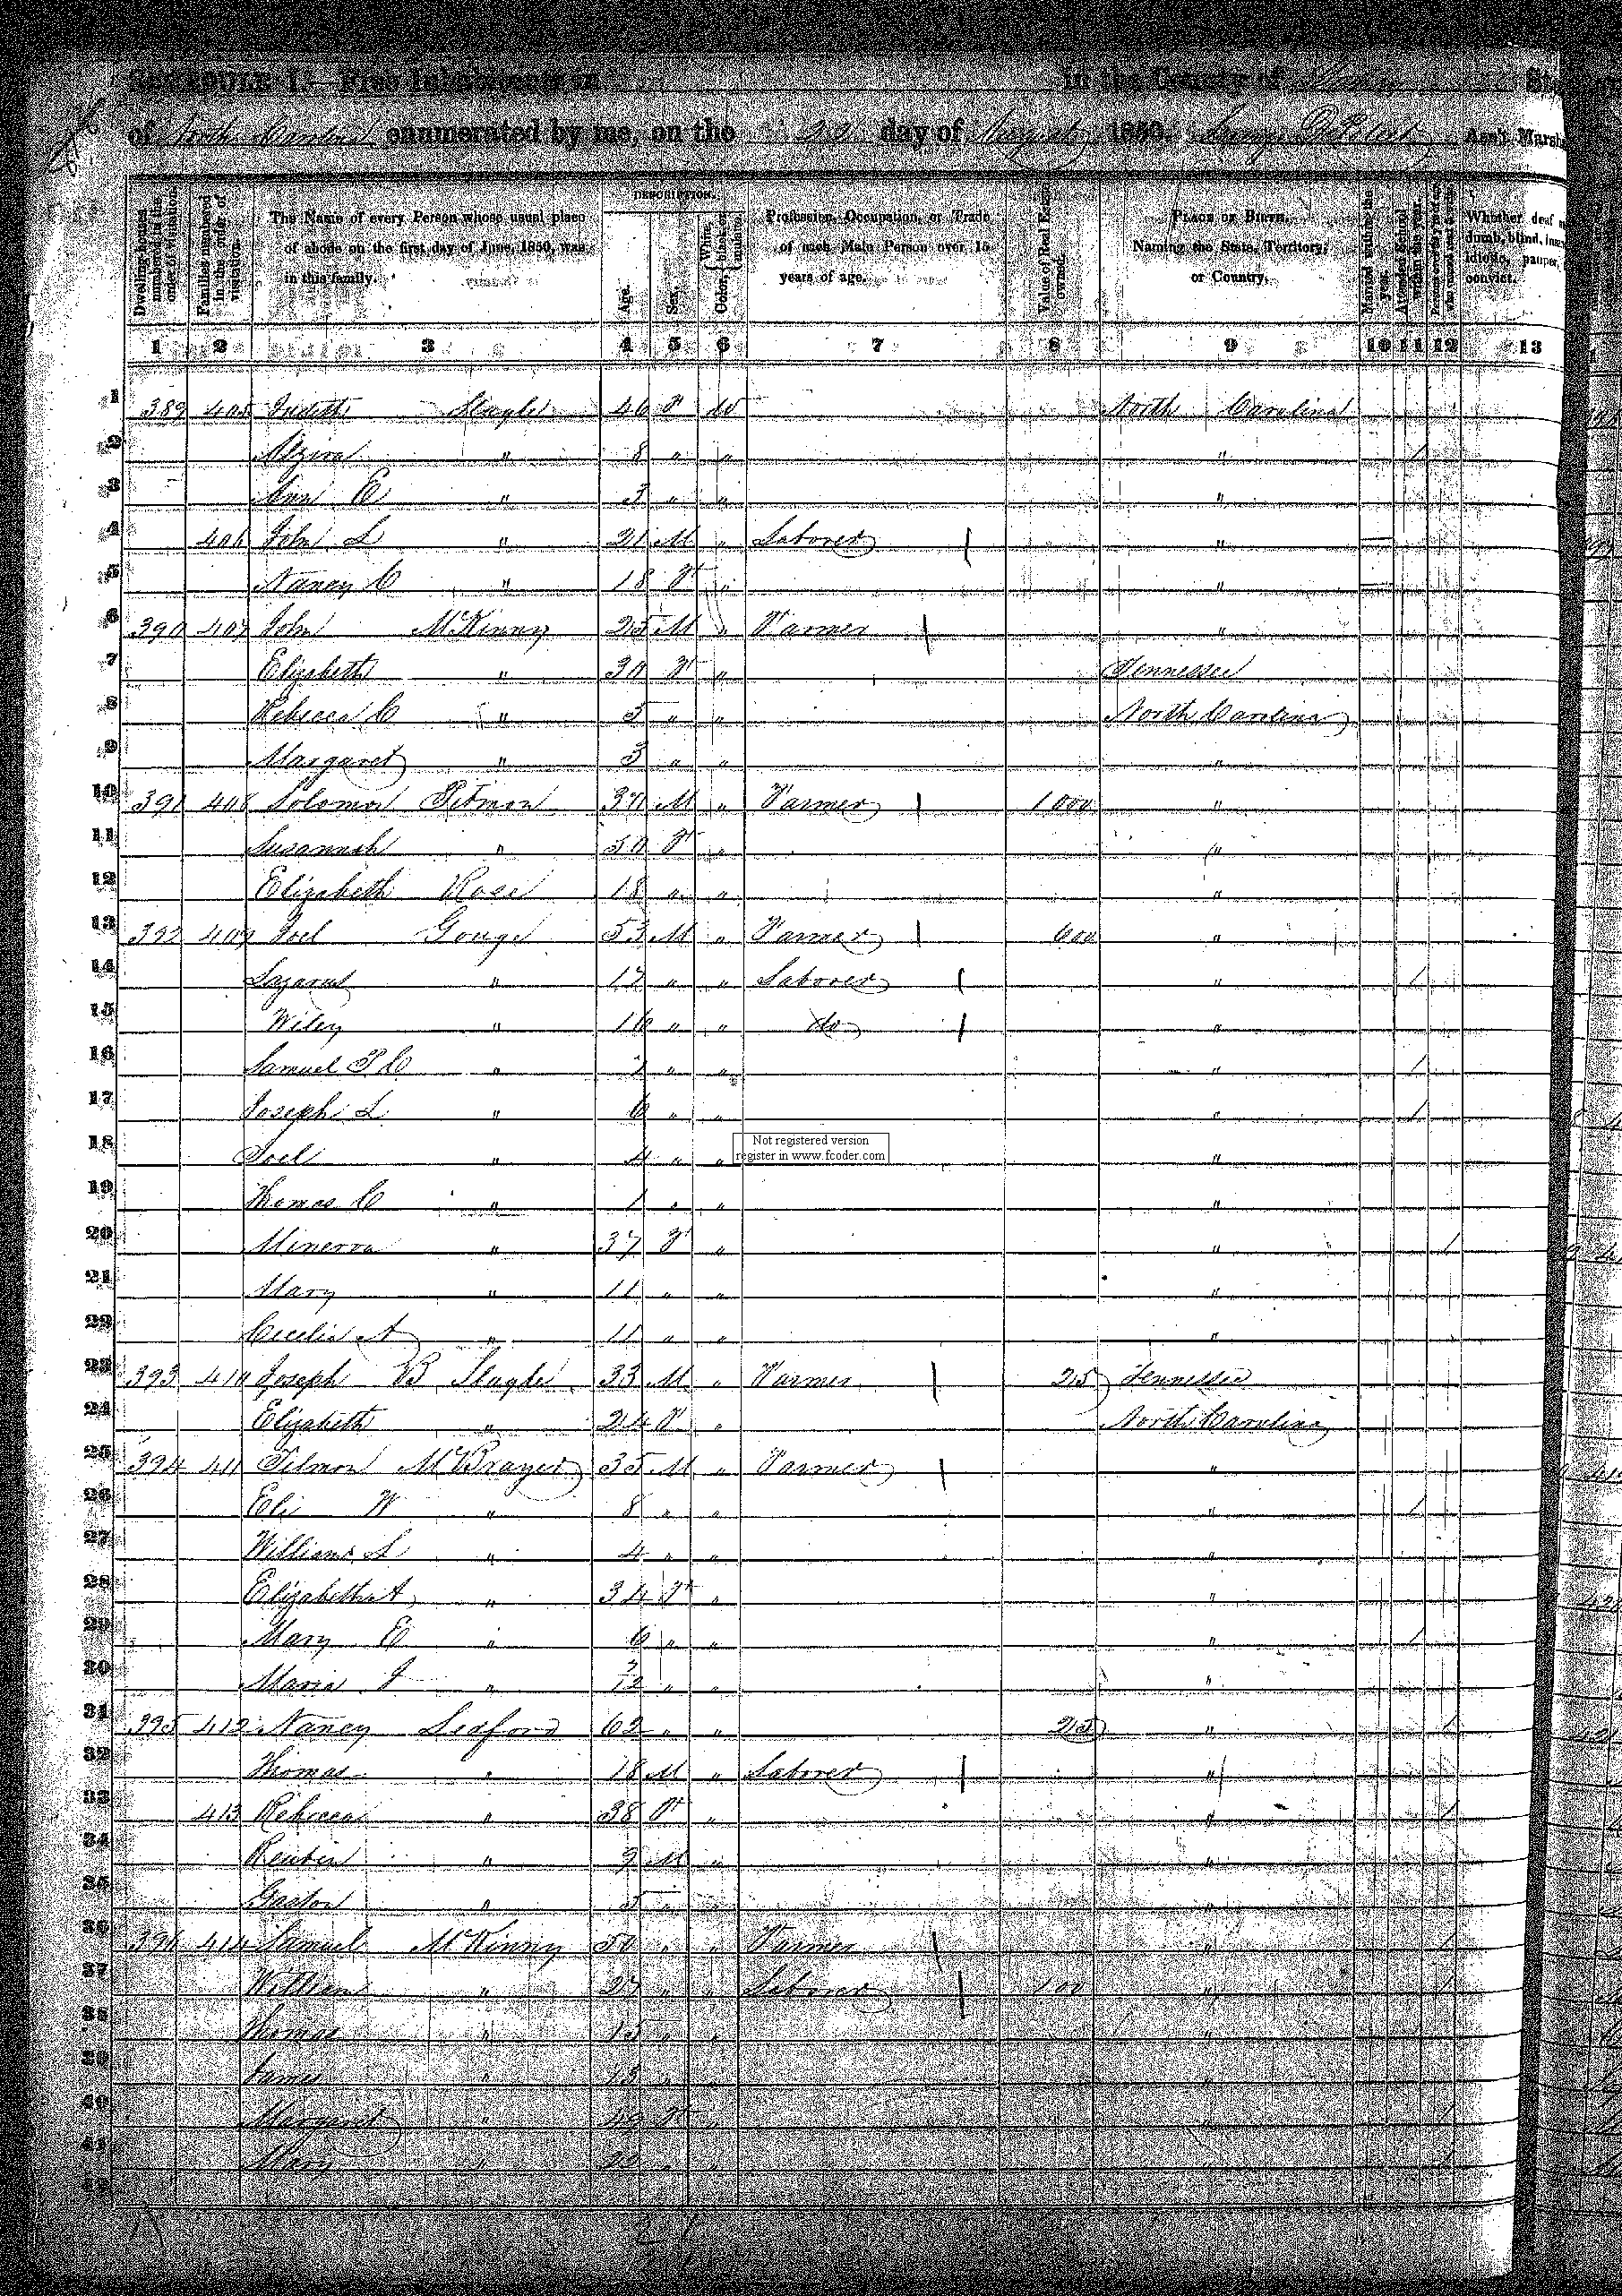 SCHEDULE I.—Free Inhabitants in in the County of
of North Carolina enumerated by me, on the 22 day of August 1850. Ass't Marshal
Dwelling-houses numbered in the order of visitation.
Families numbered in the order of visitation.
The Name of every Person whose usual place of abode on the first day of June, 1850, was in this family.
DESCRIPTION.
Age.
Sex.
Color, White, black, or mulatto.
Profession, Occupation, or Trade of each Male Person over 15 years of age.
Value of Real Estate owned.
PLACE OF BIRTH. Naming the State, Territory, or Country.
Married within the year.
Attended School within the year.
Whether deaf and dumb, blind, insane, idiotic, pauper, convict.
1 2 3 4 5 6 7 8 9 10 11 12 13
1 389 405 Judith Slagle 46 F do North Carolina
2 Alzira " 8 " " " 1
3 Ann E " 3 " " "
4 406 John L " 21 M " Laborer "
5 Nancy C " 18 F " "
6 390 407 John McKinny 25 M " Farmer "
7 Elizabeth " 30 F " Tennessee
8 Rebecca C " 5 " " North Carolina
9 Margaret " 3 " " "
10 391 408 Solomon Pitman 30 M " Farmer 1000 "
11 Susannah " 50 F " "
12 Elizabeth Rose 18 " " "
13 392 409 Joel Gouge 53 M " Farmer 600 "
14 Lazarus " 17 " " Laborer " 1
15 Wiley " 16 " " do "
16 Samuel P C " 7 " " " 1
17 Joseph L " 6 " " " 1
18 Joel " 4 " " "
19 Thomas C " 1 " " "
20 Minerva " 37 F " " 1
21 Mary " 11 " " "
22 Cecelia A " 11 " " "
23 393 410 Joseph B Slagle 33 M " Farmer 25 Tennessee
24 Elizabeth " 24 F " North Carolina
25 394 411 Tilmon McBrayer 35 M " Farmer "
26 Eli W " 8 " " " 1
27 William L " 4 " " "
28 Elizabeth A " 34 F " "
29 Mary E " 6 " " " 1
30 Maria J " 7/12 " " "
31 395 412 Nancy Ledford 62 " " 25 " 1
32 Thomas " 18 M " Laborer "
33 413 Rebecca " 38 F " " 1
34 Reubin " 9 M " "
35 Gaston " 5 " " "
36 396 414 Samuel McKinny 50 " " Farmer " 1
37 William " 27 " " Laborer 100 " 1
38 Thomas " 15 " " "
39 James " 13 " "
40 Margaret " 49 F " " 1
41 Mary " 22 " " " 1
42
Not registered version
register in www.fcoder.com